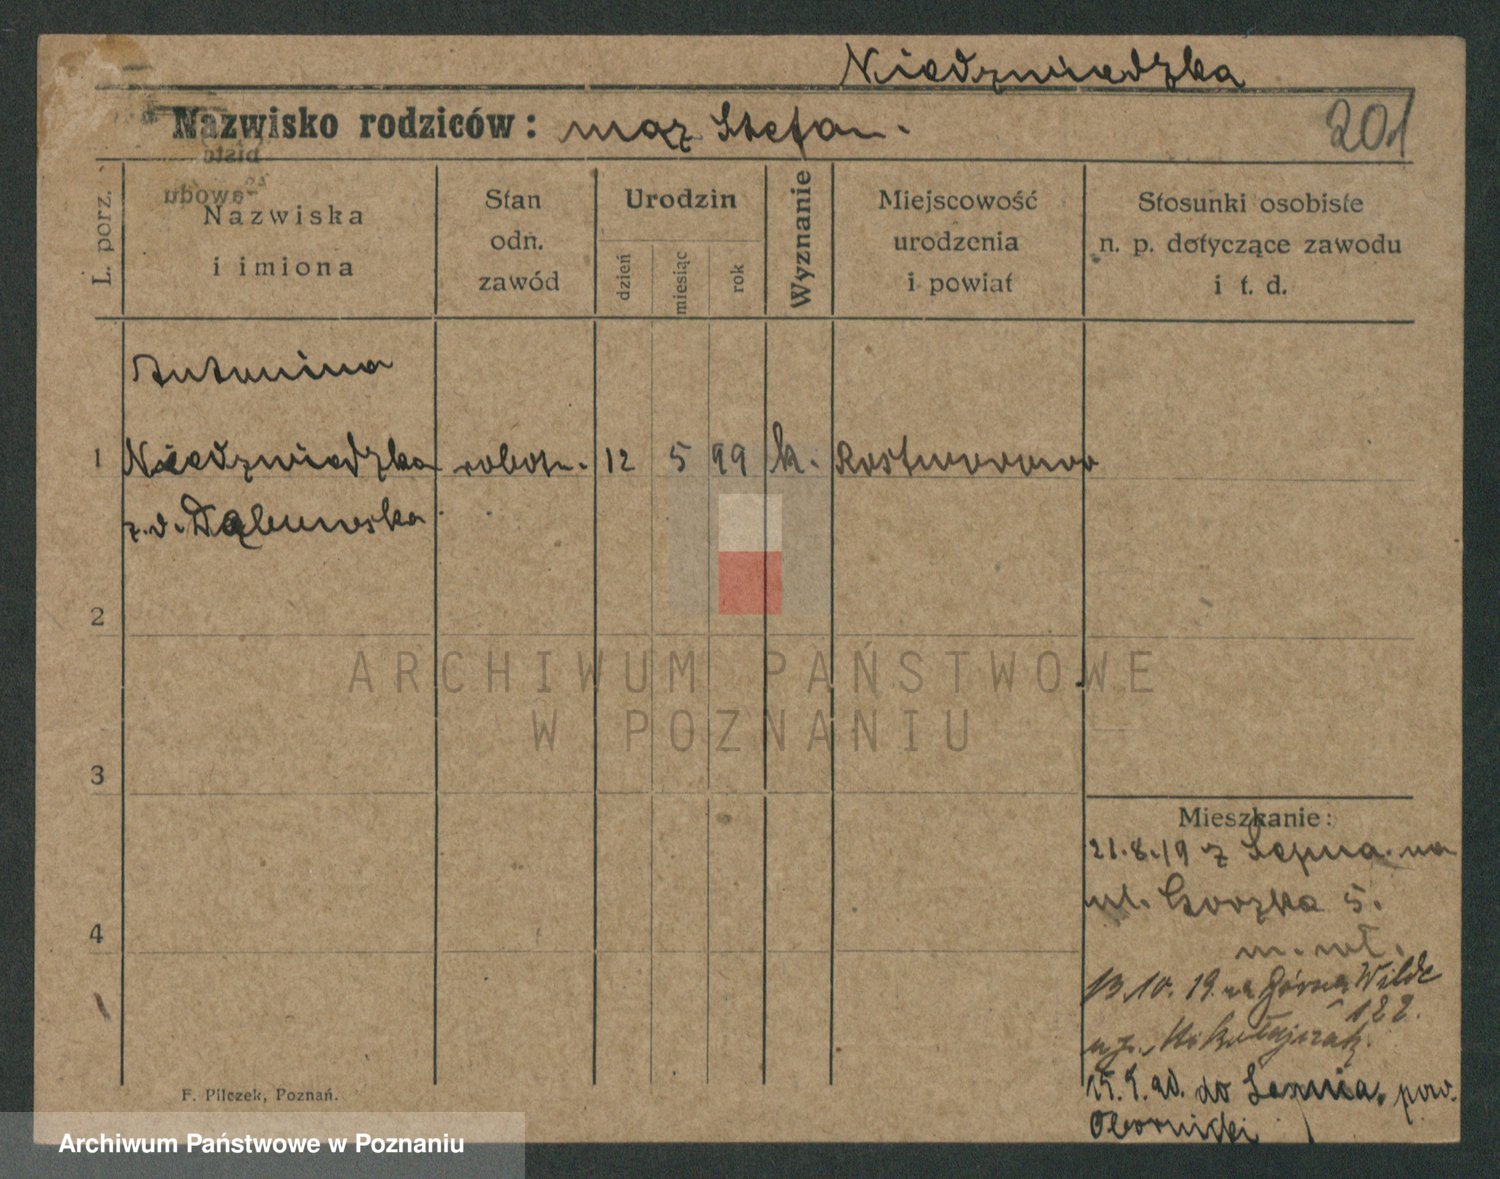 Niedzwiedzka
Nazwisko rodziców: mąz Stefan.
201
L. porz.
Nazwiska
i imiona
Stan
odn.
zawód
Urodzin
dzień
miesiąc
rok
Wyznanie
Miejscowość
urodzenia
i powiat
Stosunki osobiste
n. p. dotyczące zawodu
i t. d.
Antonina
1 Niedzwiedzka robotn. 12 5 99 k. Rostworowo
z. d. Dąbrowska
2
ARCHIWUM PAŃSTWOWE
W POZNANIU
3
Mieszkanie:
21.8.19 z na
ul. 5.
4
13.10.19. na Górna Wilde
122.
Mikołajczak.
do pow.
Obornicki
F. Pilczek, Poznań.
Archiwum Państwowe w Poznaniu